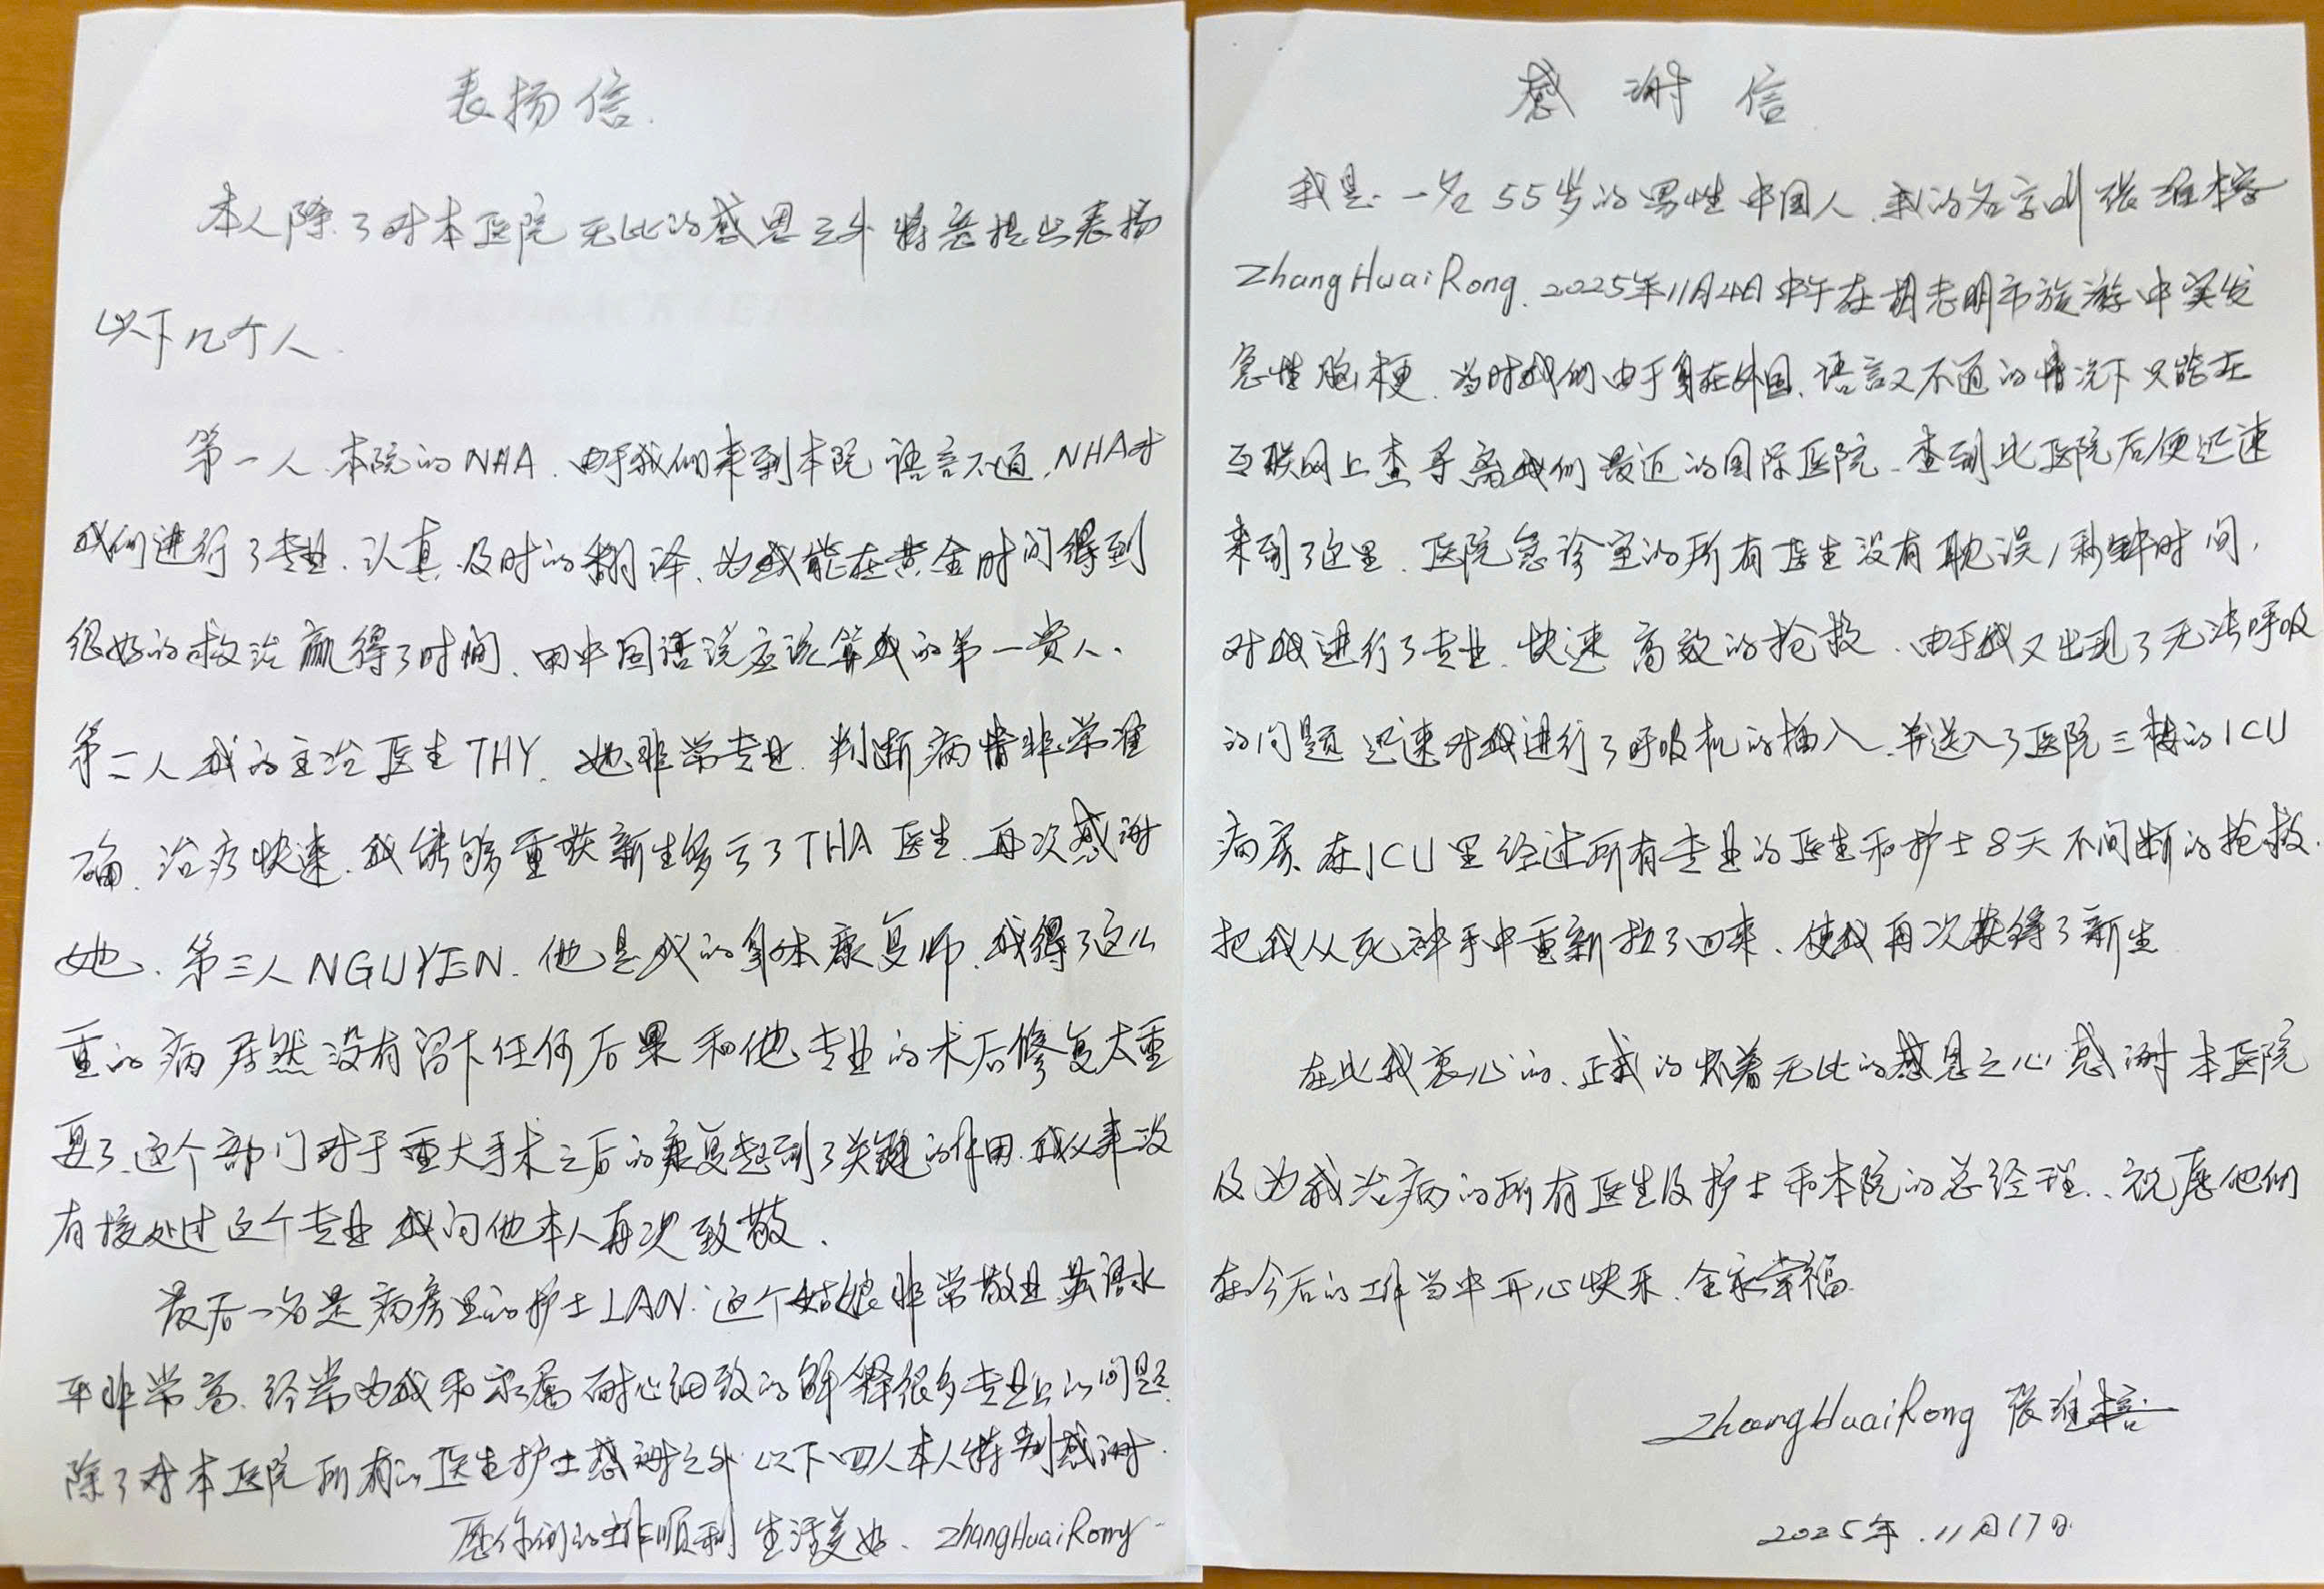 表扬信.
本人除了对本医院无比的感恩之外 特意提出表扬
以下几个人.
第一人、本院的NHA. 由于我们来到本院 语言不通. NHA对
我们进行了专业. 认真. 及时的翻译、为我能在黄金时间得到
很好的救治 赢得了时间、用中国话说应该算我的第一贵人.
第二人 我的主治医生THY. 她非常专业. 判断病情非常准
确. 治疗快速. 我能够重获新生多亏了THA医生. 再次感谢
她. 第三人NGUYEN. 他是我的身体康复师. 我得了这么
重的病 居然没有留下任何后果 和他专业的术后修复太重
要了. 这个部门对于重大手术之后的康复起到了关键的作用. 我从来没
有接处过这个专业 我向他本人再次致敬.
最后一名是病房里的护士LAN. 这个姑娘非常敬业 英语水
平非常高. 经常为我和家属耐心细致的解释很多专业上的问题.
除了对本医院所有的医生护士感谢之外 以下四人本人特别感谢.
愿你们的工作顺利 生活美好. ZhangHuaiRong
感谢信
我是一名55岁的男性中国人. 我的名字叫张
ZhangHuaiRong. 2025年11月4日中午在胡志明市旅游中突发
急性脑梗. 当时我们由于身在外国、语言又不通的情况下只能在
互联网上查寻离我们最近的国际医院. 查到此医院后便迅速
来到了这里. 医院急诊室的所有医生没有耽误1秒钟时间,
对我进行了专业. 快速 高效的抢救. 由于我又出现了无法呼吸
的问题 迅速对我进行了呼吸机的插入. 并送入了医院三楼的ICU
病房. 在ICU里经过所有专业的医生和护士8天不间断的抢救.
把我从死神手中重新拉了回来、使我再次获得了新生
在此我衷心的、正式的怀着无比的感恩之心感谢本医院
及为我治病的所有医生及护士和本院的总经理.、祝愿他们
在今后的工作当中开心快乐、全家幸福.
ZhangHuaiRong 张
2025年.11月17日.